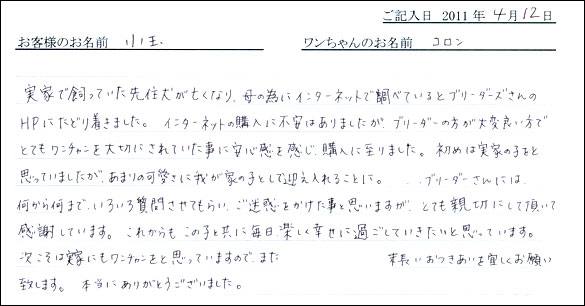 ご記入日 2011年4月12日
お客様のお名前 小玉 ワンちゃんのお名前 コロン
実家で飼っていた先住犬が亡くなり、母の為にインターネットで調べているとブリーダーズさんの
HPにたどり着きました。インターネットの購入に不安はありましたが、ブリーダーの方が大変良い方で
とてもワンチャンを大切にされていた事に安心感を感じ、購入に至りました。初めは実家の子をと
思っていましたが、あまりの可愛さに我が家の子として迎え入れることに。 ブリーダーさんには、
何から何まで、いろいろ質問させてもらい、ご迷惑をかけた事と思いますが、とても親切にして頂いて
感謝しています。これからもこの子と共に毎日楽しく幸せに過ごしていきたいと思っています。
次こそは実家にもワンチャンをと思っていますので、また 末長いおつきあいを宜しくお願い
致します。本当にありがとうございました。